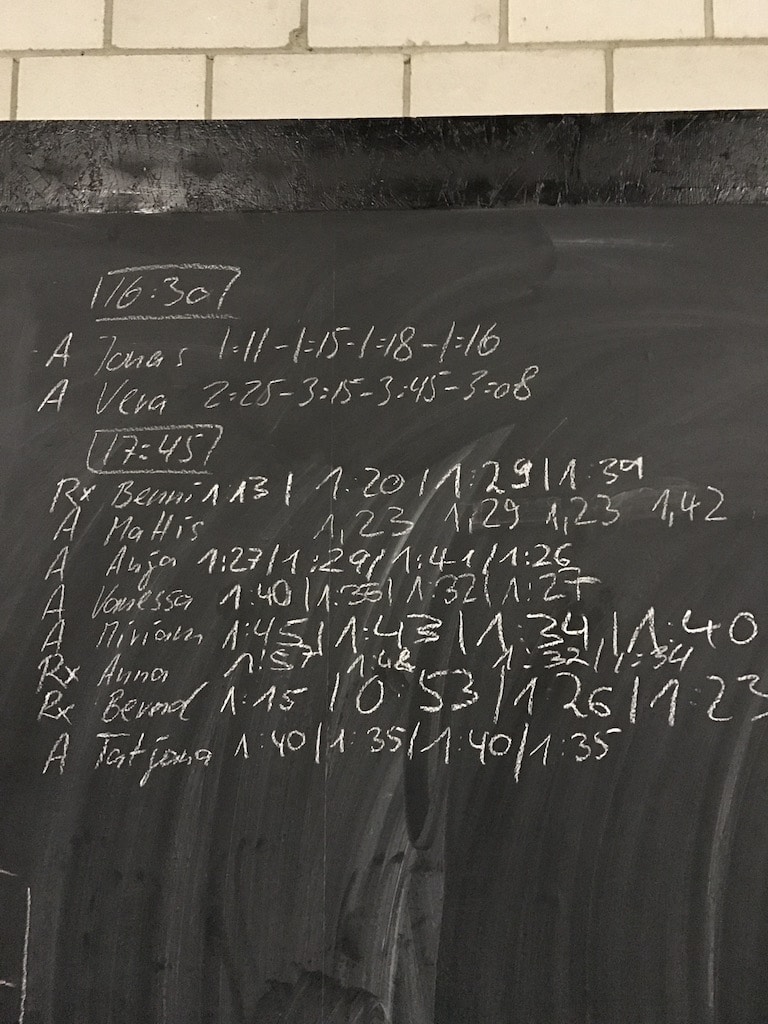 16:30
A Jonas 1:11 - 1:15 - 1:18 - 1:16
A Vera 2:25 - 3:15 - 3:45 - 3:08
17:45
Rx Benni 1:13 | 1:20 | 1:29 | 1:39
A Mattis 1,23 1,29 1,23 1,42
A Anja 1:27 | 1:29 | 1:41 | 1:26
A Vanessa 1:40 | 1:36 | 1:32 | 1:27
A Miriam 1:45 | 1:43 | 1:34 | 1:40
Rx Anna 1:57 1:42 1:32 | 1:34
Rx Bernd 1:15 | 0:53 | 1:26 | 1:23
A Tatjana 1:40 | 1:35 | 1:40 | 1:35